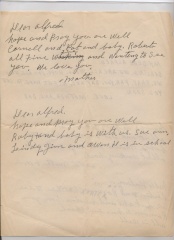 Dear alfred
hope and pray you are well
Cornell and and baby. Robert
all fine and wanting to see
you, We love you,
mother
Dear alfred.
hope and pray you are well
Ruby and baby is with us. Sae our
fine and is in school